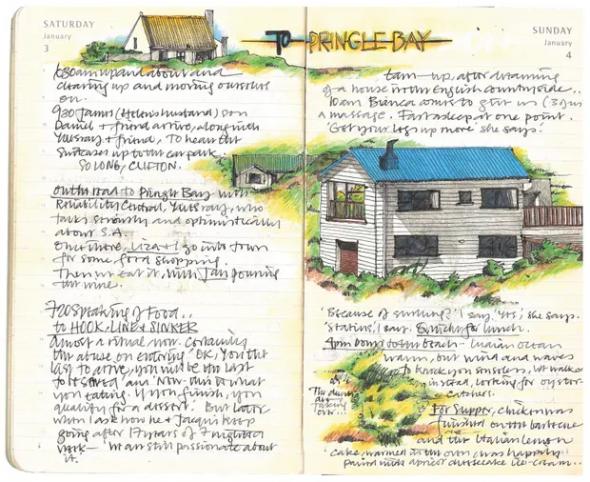 SATURDAY
January
3
TO PRINGLE BAY
SUNDAY
January
4
6.30am up and about and
clearing up and moving ourselves
on.
930 James (Helen's husband) son
Daniel + friend arrive, along with
+ friend, To hear the
suitcases up to the car park.
SO LONG, CLIFTON.
On the road to Pringle Bay with
Reliability Central, who
talks seriously and optimistically
about S.A.
Once there, Liza + I go into town
for some food shopping.
Then we eat it, with Jan pouring
the wine.
720 Speaking of Food..
to HOOK, LINE & SINKER
Almost a ritual now. Certainly
the abuse on entering 'OK, you the
last to arrive, you will be the last
to be served' and 'Now this is what
you eating. If you finish, you
qualify for a dessert.' But later
when I ask how he + Jacqui keep
going after 17 years of 7 nights a
week - 'We are still passionate about
it.'
7am - up, after dreaming
of a house in the English countryside..
10am Bianca comes to give us (3) gins
a massage. Fast asleep at one point.
'Get your legs up more' she says.
'Because of surfing?' I say. 'Yes', she says.
'Statins', I say. for lunch.
4pm Down to the beach - Indian ocean
warm, but wind and waves
to knock you senseless, we walked
instead, looking for oyster-
catchers.
The
are
out...
For Supper, chicken was
finished on the barbecue
and the Italian lemon
cake, warmed in the oven was happily
paired with apricot cheesecake ice-cream..